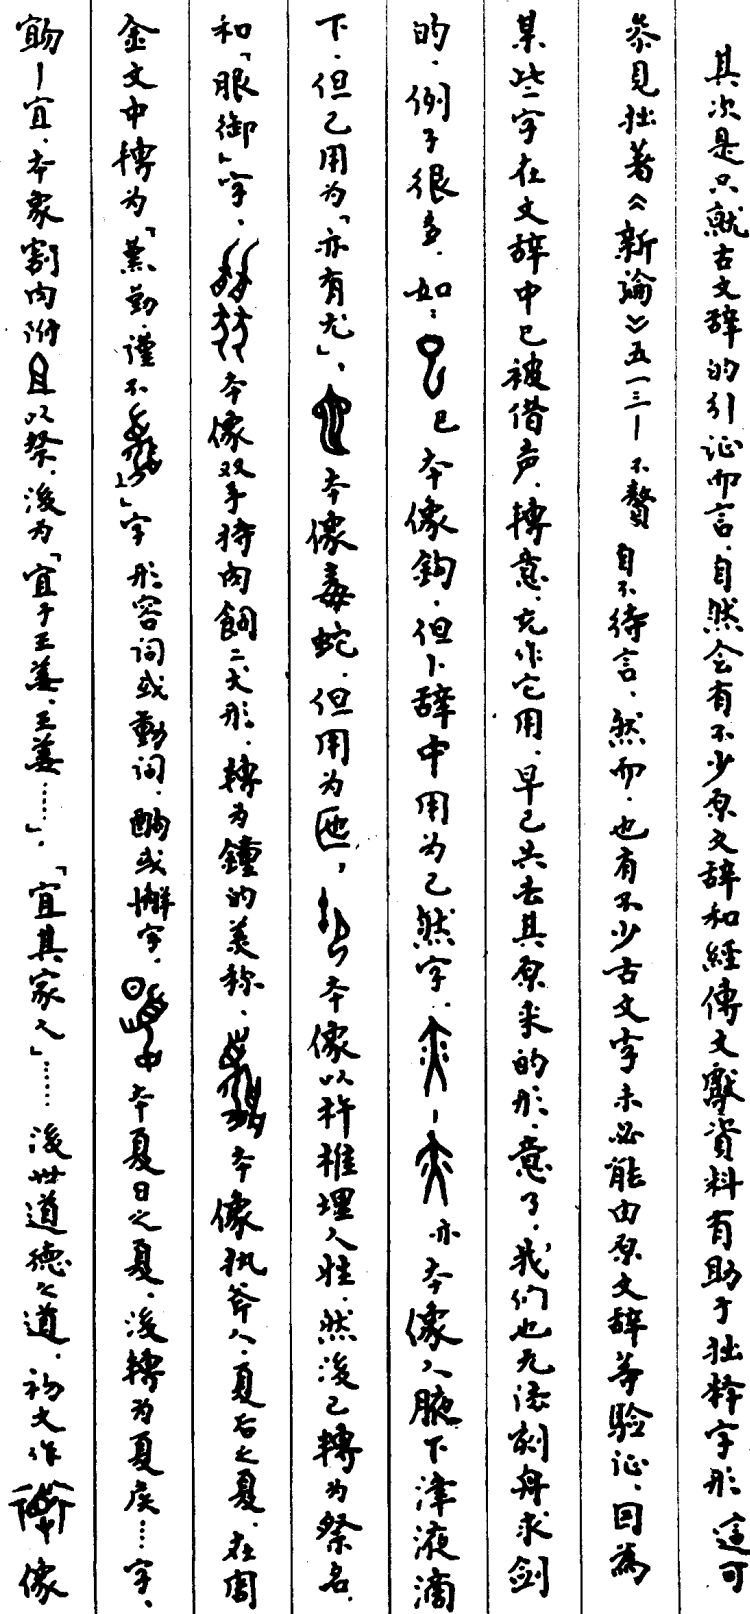 其次是只就古文辞的引证而言.自然会有不少原文辞和經傳文獻資料有助于拙释字形 這可
参见拙著《新論》五一三—不贅 自不待言、然而.也有不少古文字未必能由原文辞等验证、因為
某些字在文辞中已被借声.轉意.充作它用.早已失去其原来的形.意了.我们也无須刻舟求剑
的.例子很多.如:已本像鈎.但卜辞中用为已然字.—亦本像人腋下津液滴
下.但已用为「亦有尤」、本像毒蛇.但用为迤,本像以杵椎埋人牲.然後已轉为祭名.
和「服御」字、本像双手持肉飼二犬形.轉为鐘的美称.本像执斧人.夏后之夏.在周
金文中轉为「勤.谨不」字形容词或動词.酬或懈字.本夏日之夏.後轉为夏侯……字、
—宜.本象割肉附且以祭.後为「宜于王姜.王姜……」.「宜其家人」……後世道德之道.初文作像